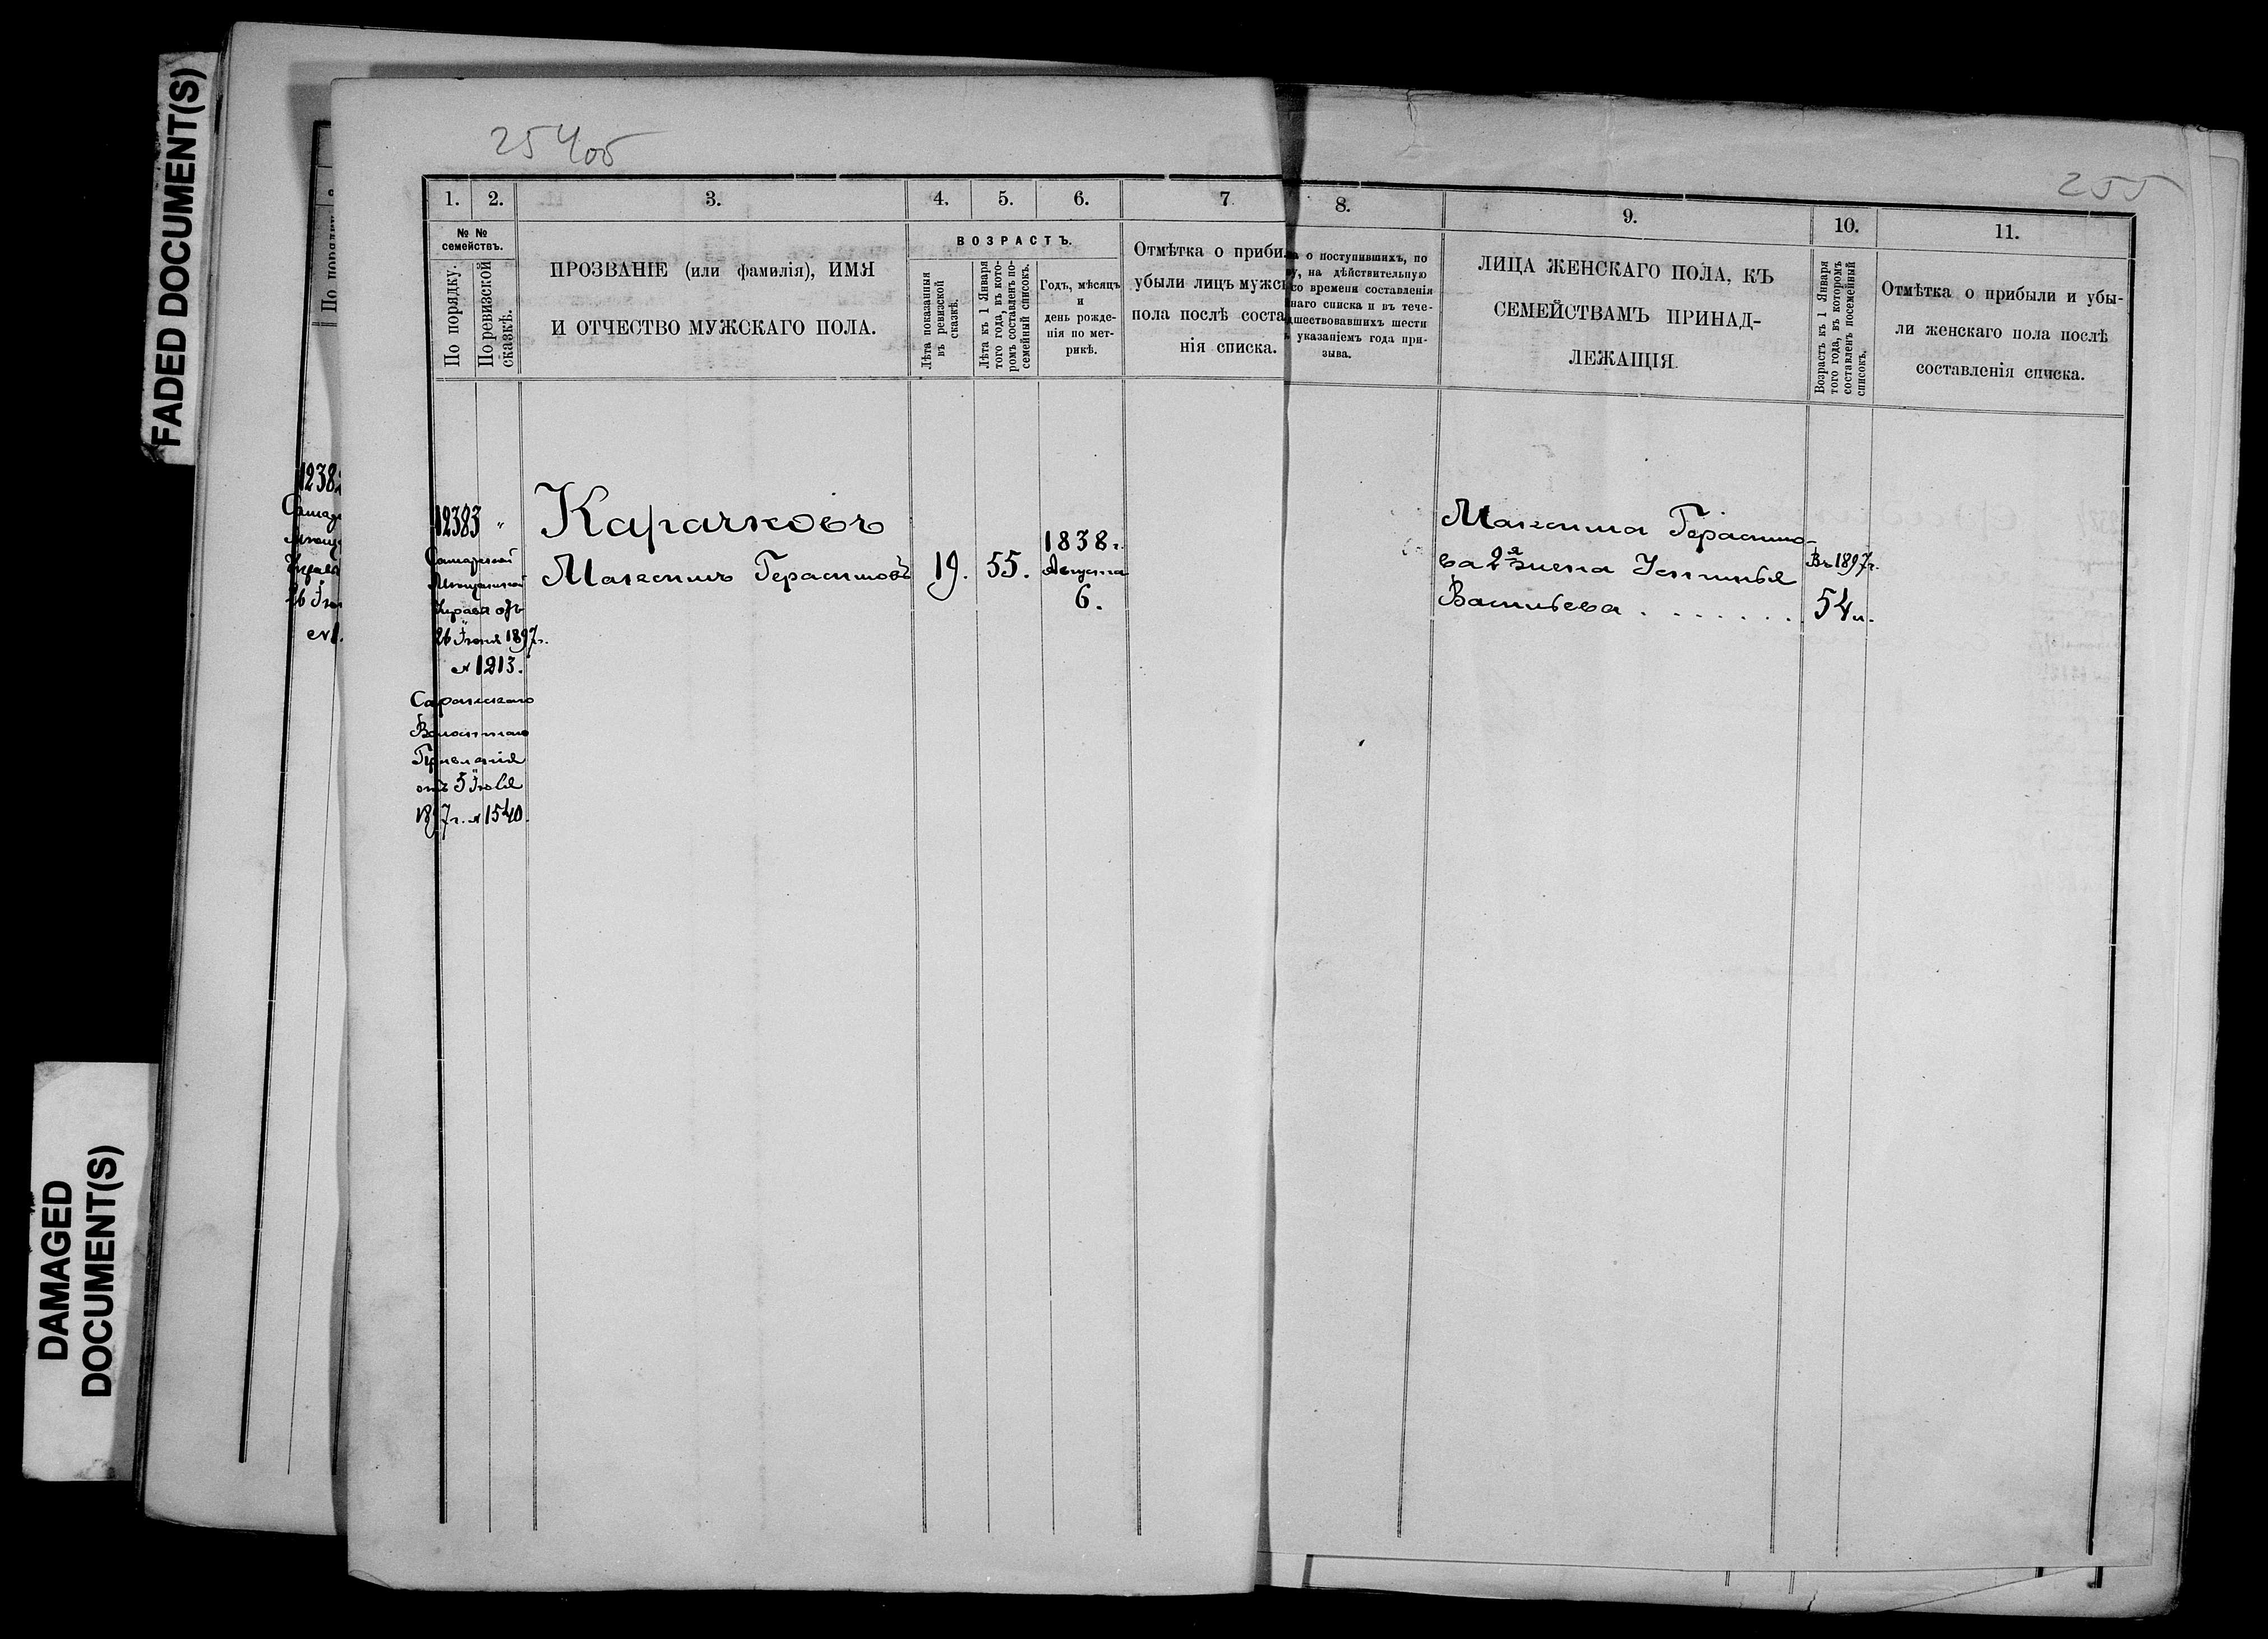 FADED DOCUMENT(S)
DAMAGED
DOCUMENT(S)
254об
255
1. 2. 3. 4. 5. 6. 7. 8. 9. 10. 11.
№ №
семействъ.
По порядку.
По ревизской
сказкѣ.
ПРОЗВАНІЕ (или фамилія), ИМЯ
И ОТЧЕСТВО МУЖСКАГО ПОЛА.
ВОЗРАСТЪ.
Лѣта показанныя
въ ревизской
сказкѣ.
Лѣта къ 1 Января
того года, въ кото-
ромъ составленъ по-
семейный списокъ.
Годъ, мѣсяцъ
и
день рожде-
нія по мет-
рикѣ.
Отмѣтка о прибы
убыли лицъ мужс
пола послѣ соста
нія списка.
а о поступившихъ, по
у, на дѣйствительную
со времени составленія
наго списка и въ тече-
дшествовавшихъ шести
указаніемъ года при-
зыва.
ЛИЦА ЖЕНСКАГО ПОЛА, КЪ
СЕМЕЙСТВАМЪ ПРИНАД-
ЛЕЖАЩІЯ.
Возрастъ къ 1 Января
того года, въ которомъ
составленъ посемейный
списокъ.
Отмѣтка о прибыли и убы-
ли женскаго пола послѣ
составленія списка.
По порядку
1238
12383 "
Самарской
Мѣщанской
Управы отъ
26 Іюня 1897г.
№ 1213.
Волостнаго
Правленія
отъ 5 Іюля
1897г. № 1540.
Карачковъ
Максимъ Герасимовъ 19. 55.
1838г.
Августа
6.
Максима Герасимо-
ва 2я жена Устинья
Васильева . . . . . . .
Въ 1897г.
54 л.